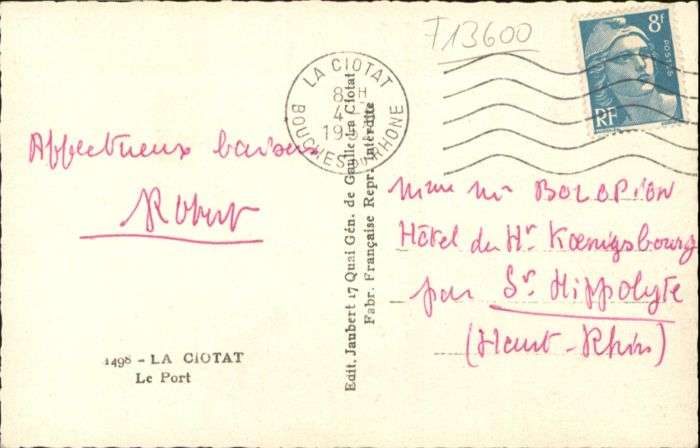 F13600
8f
POSTES
RF
LA CIOTAT
8 H
4
19
BOUCHES DU RHONE
Affectueux baisers
Robert
Edit. Jaubert 17 Quai Gén. de Gaulle La Ciotat
Fabr. Française Repr. Interdite
Hôtel du Ht Kœnigsbourg
par St Hippolyte
(Haut-Rhin)
1498 - LA CIOTAT
Le Port